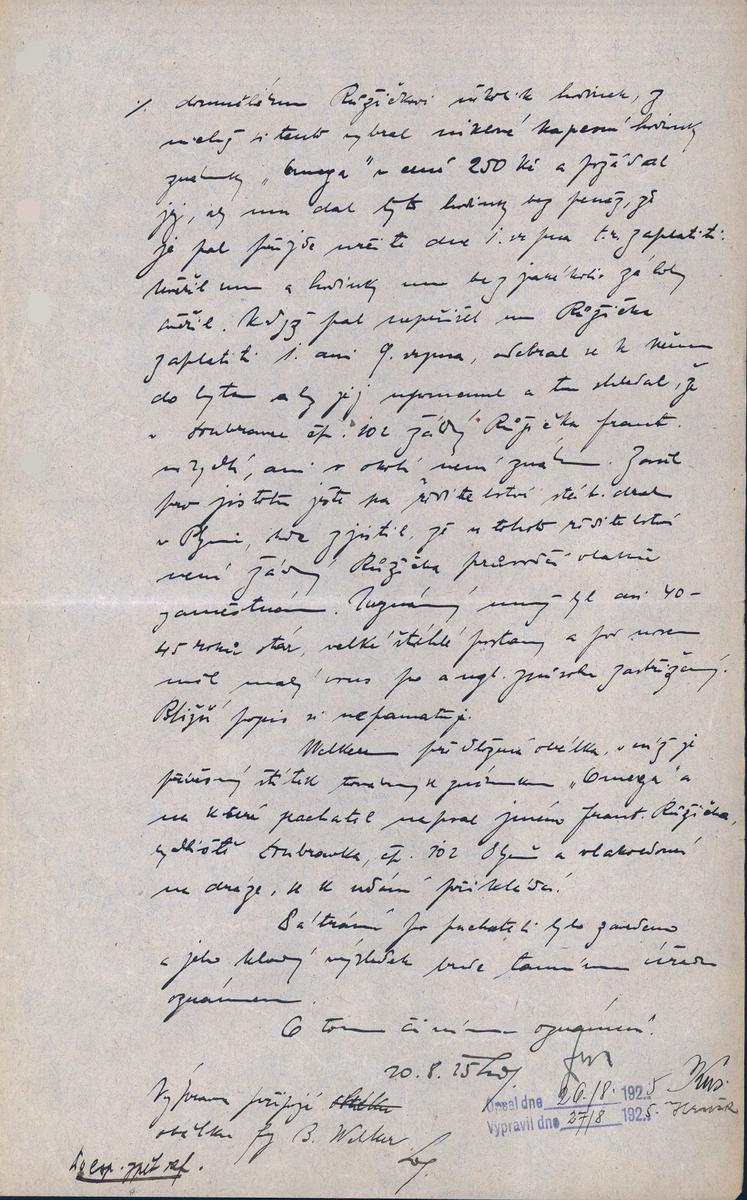 ./. domnělému Růžičkovi několik hodinek, z
nichž si tento vybral niklové kapesní hodinky
značky „Omega" v ceně 250 Kč a požádal
jej, aby mu dal tyto hodinky bez peněz, že
je pak přijde určitě dne 1. srpna t.r. zaplatiti.
Uvěřil mu a hodinky mu bez jakékoliv zálohy
svěřil. Když pak nepřišel mu Růžička
zaplatiti 1. ani 9. srpna, odebral se k němu
do bytu aby jej upomenul a tu shledal, že
v Doubravce čp. 102 žádný Růžička Frant.
nebydlí, ani v okolí není znám. Zašel
pro jistotu ještě na ředitelství stát. drah
v Plzni, kde zjistil, že u tohoto ředitelství
není žádný Růžička průvodčí vlaku
zaměstnán. Neznámý muž byl asi 40-
45 roků stár, velké štíhlé postavy a pod nosem
měl malý vous po angl. způsobu zastřižený.
Bližší popis si nepamatuje.
Welkrem předložená obálka, v níž je
přívěsný štítek továrny k známkám „Omega" a
na které pachatel napsal jméno Frant. Růžička,
bydliště Doubravka, čp. 102 Plzeň a vlakvedoucí
na dráze, se k udání přikládá.
Pátrání po pachateli bylo zavedeno
a jeho kladný výsledek bude tamnímu úřadu
oznámen.
O tom činíme oznámení.
20.8.25
Opsal dne 26/8. 1925
Vypravil dne 27/8 1925.
Výprava připojí
obálku fy B. Welker.